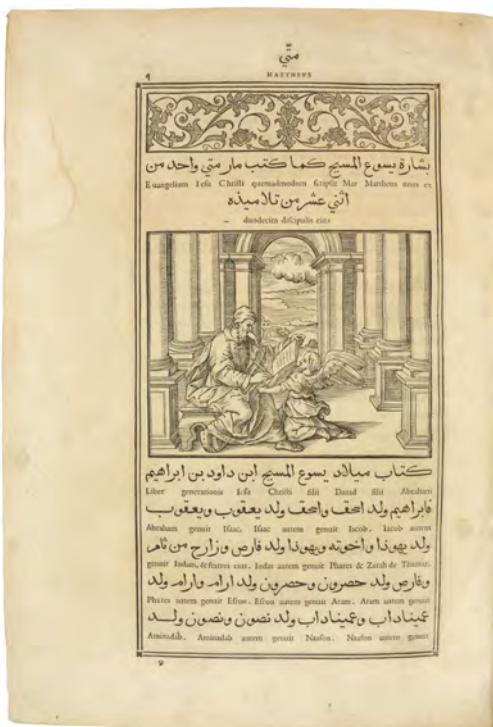 متّي
٩
MATTHEVS
بشارة يسوع المسيح كما كتب مار متي واحد من
Euangelium Iesu Christi quemadmodum scripsit Mar Mattheus unus ex
اثني عشر من تلاميذه
duodecim discipulis eius
كتاب ميلاد يسوع المسيح ابن داود بن ابراهيم
Liber generationis Iesu Christi filii Dauid filii Abraham
فابراهيم ولد اسحق واسحق ولد يعقوب ويعقوب
Abraham genuit Isaac. Isaac autem genuit Iacob. Iacob autem
ولد يهوذا واخوته ويهوذا ولد فارص وزارح من ثامر
genuit Iudam, & fratres eius. Iudas autem genuit Phares & Zarah de Thamar.
وفارص ولد حصرون وحصرون ولد ارام وارام ولد
Phares autem genuit Esron. Esron autem genuit Aram. Aram autem genuit
عميناداب وعميناداب ولد نصون ونصون ولد
Aminadab. Aminadab autem genuit Naason. Naason autem genuit